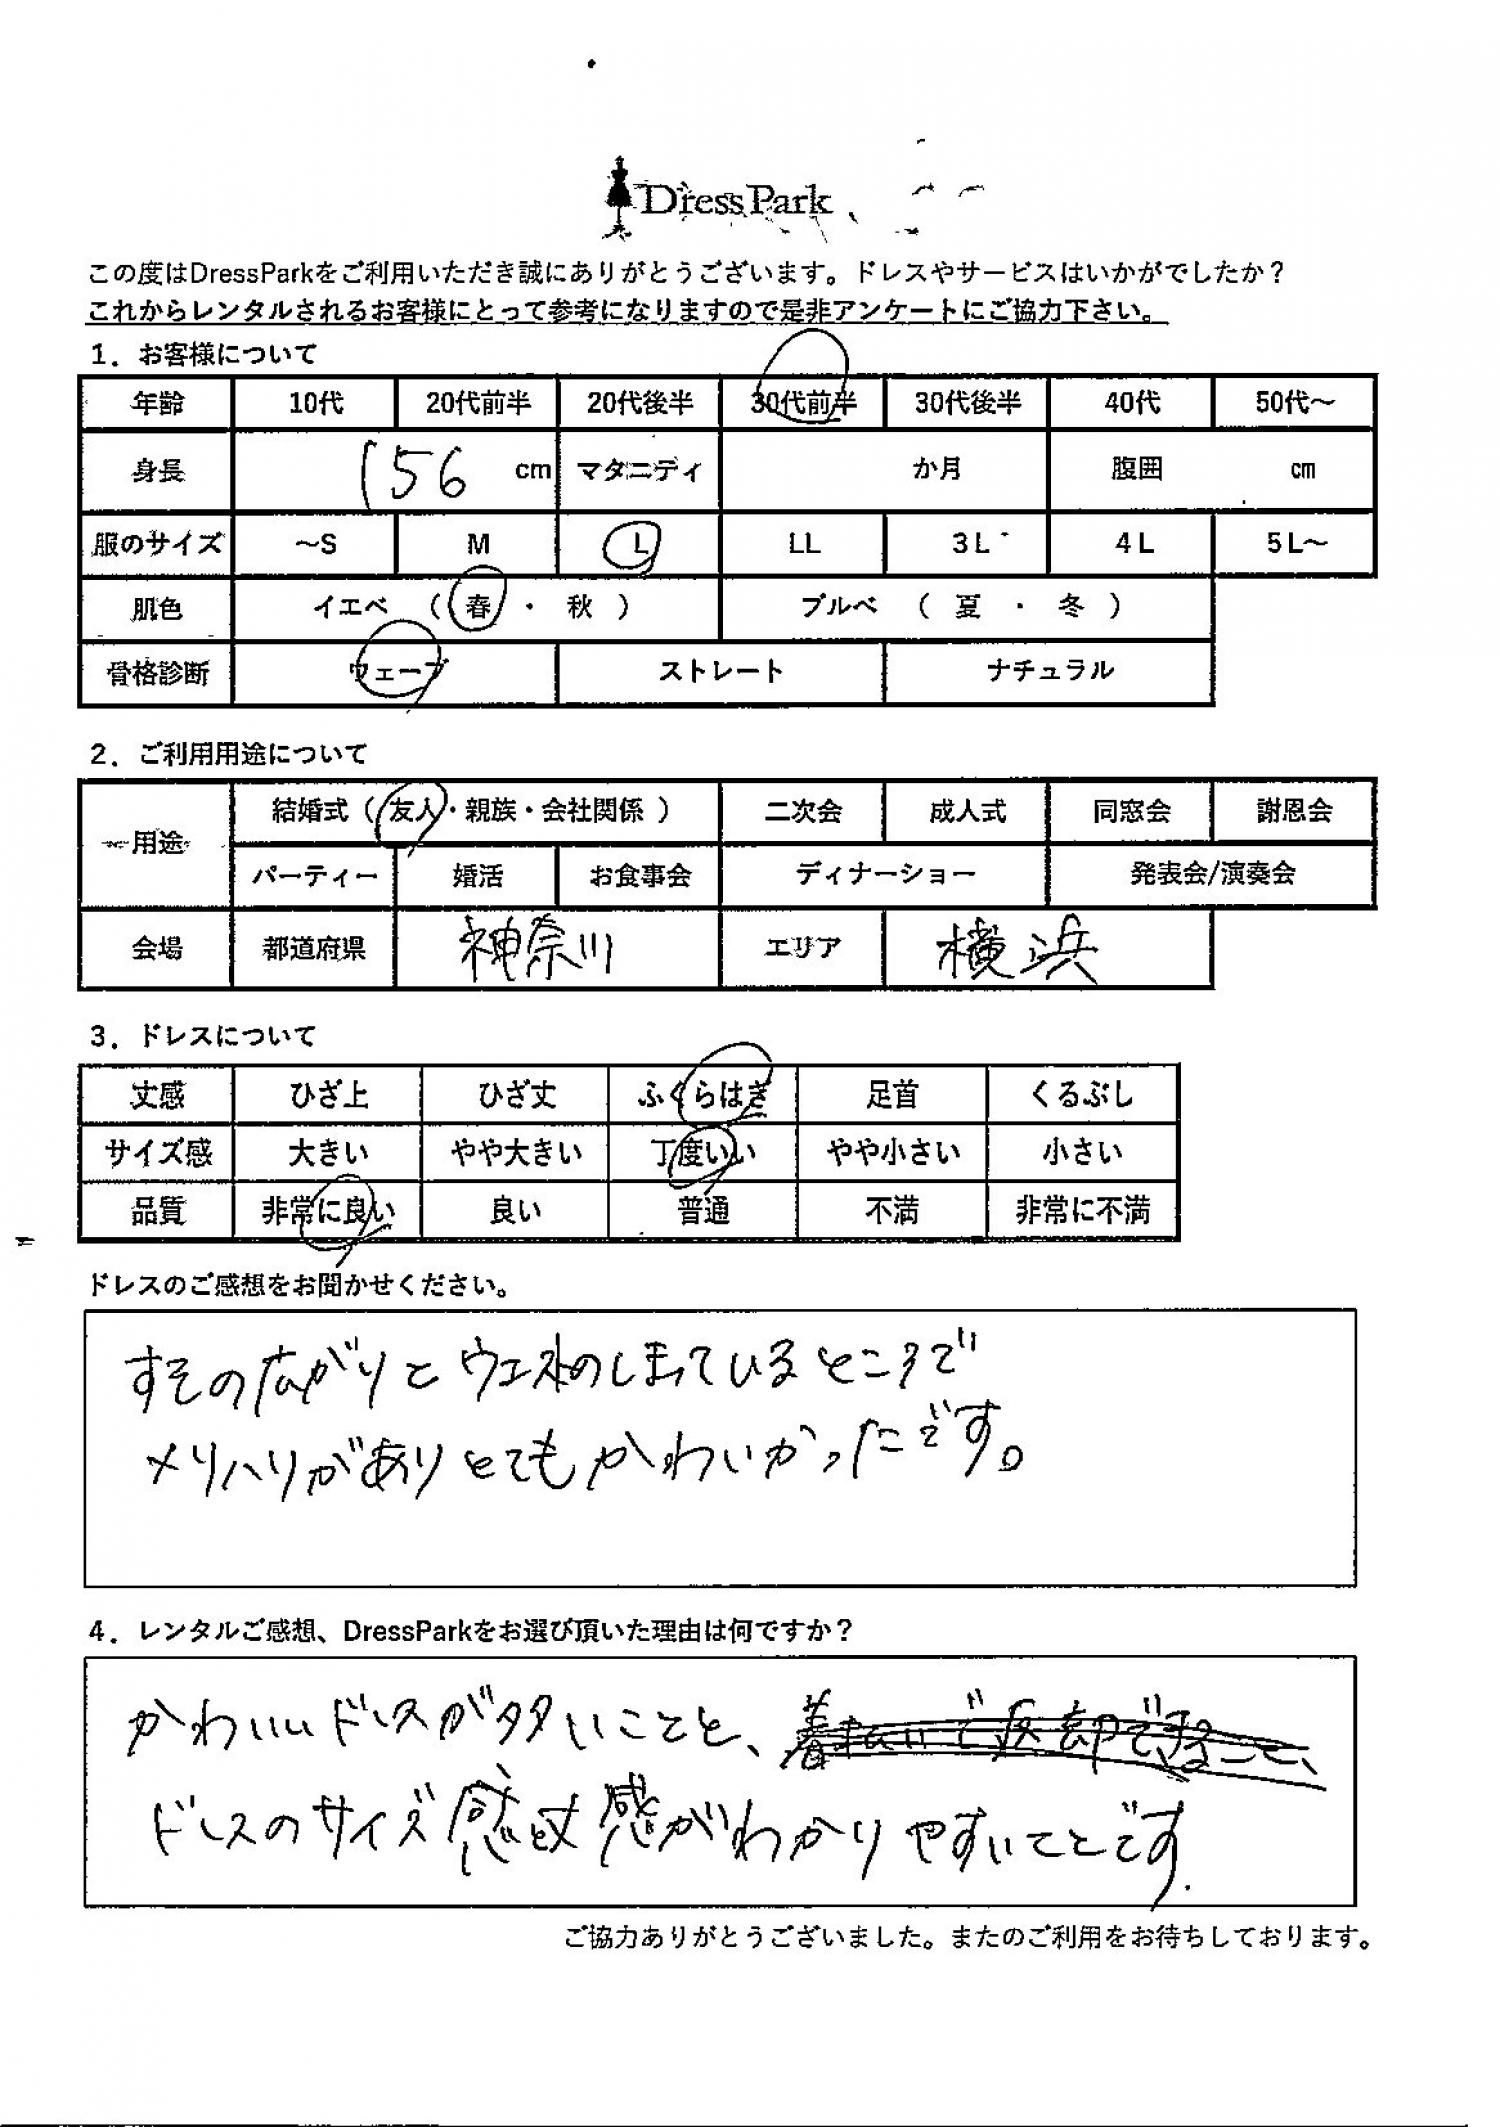 DressPark
この度はDressParkをご利用いただき誠にありがとうございます。ドレスやサービスはいかがでしたか？
これからレンタルされるお客様にとって参考になりますので是非アンケートにご協力下さい。
1．お客様について
年齢 10代 20代前半 20代後半 30代前半 30代後半 40代 50代～
身長 156 cm マタニティ か月 腹囲 cm
服のサイズ ～S M L LL 3L 4L 5L～
肌色 イエベ （ 春 ・ 秋 ） ブルベ （ 夏 ・ 冬 ）
骨格診断 ウェーブ ストレート ナチュラル
2．ご利用用途について
用途 結婚式（ 友人・親族・会社関係 ） 二次会 成人式 同窓会 謝恩会
パーティー 婚活 お食事会 ディナーショー 発表会/演奏会
会場 都道府県 神奈川 エリア 横浜
3．ドレスについて
丈感 ひざ上 ひざ丈 ふくらはぎ 足首 くるぶし
サイズ感 大きい やや大きい 丁度いい やや小さい 小さい
品質 非常に良い 良い 普通 不満 非常に不満
ドレスのご感想をお聞かせください。
すその広がりとウエストのしまっているところで
メリハリがありとてもかわいかったです。
4．レンタルご感想、DressParkをお選び頂いた理由は何ですか？
かわいいドレスが多いことと、着払いで返却できること、
ドレスのサイズ感と丈感がわかりやすいことです.
ご協力ありがとうございました。またのご利用をお待ちしております。